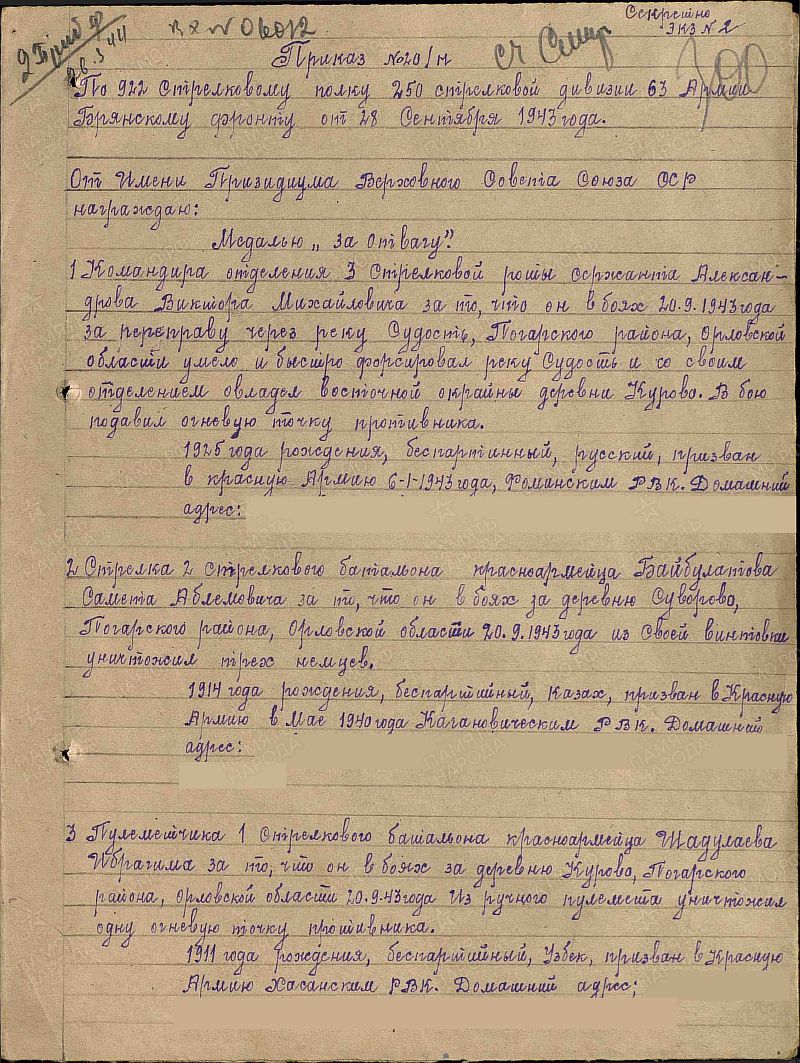 Секретно
Экз № 2
вх № 06012
26.3.44
300
Приказ №20/н
По 922 Стрелковому полку 250 стрелковой дивизии 63 Армии
Брянскому фронту от 28 Сентября 1943 года.
От Имени Призидиума Верховного Совета Союза ССР
награждаю:
Медалью „За отвагу".
1 Командира отделения 3 Стрелковой роты сержанта Алексан-
дрова Виктора Михайловича за то, что он в боях 20.9.1943 года
за переправу через реку Судость, Погарского района, Орловской
области умело и быстро форсировал реку Судость и со своим
отделением овладел восточной окрайны деревни Курово. В бою
подавил огневую точку противника.
1925 года рождения, беспартийный, русский, призван
в красную Армию 6-1-1943 года, Фоминским РВК. Домашний
адрес:
2 Стрелка 2 стрелкового батальона красноармейца Байбулатова
Самета Аблемовича за то, что он в боях за деревню Суворово,
Погарского района, Орловской области 20.9.1943 года из Своей винтовки
уничтожил трех немцев.
1914 года рождения, беспартийный, казах, призван в Красную
Армию в Мае 1940 года Кагановическим РВК. Домашний
адрес:
3 Пулеметчика 1 Стрелкового батальона красноармейца Шадулаева
Ибрагима за то, что он в боях за деревню Курово, Погарского
района, Орловской области 20.9.43 года Из ручного пулемета уничтожил
одну огневую точку противника.
1911 года рождения, беспартийный, Узбек, призван в Красную
Армию Хасанским РВК. Домашний адрес;
ПАМЯТЬ НАРОДА